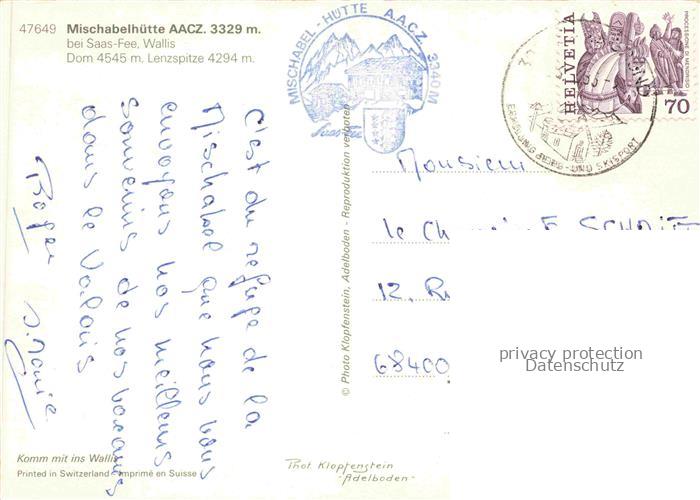 47649 Mischabelhütte AACZ. 3329 m.
bei Saas-Fee, Wallis
Dom 4545 m. Lenzspitze 4294 m.
MISCHABEL - HÜTTE A.A.C.Z. 3340M
Saas-Fee
HELVETIA
PROCESSIONE DI MENDRISIO
70
ERHOLUNG BERG- UND SKISPORT
C'est du refuge de la
Mischabel que nous vous
envoyons nos meilleurs
souvenirs de nos vacances
dans le Valais
Roger
© Photo Klopfenstein, Adelboden - Reproduktion verboten
Monsieur
le Ch
12, R
68400
privacy protection
Datenschutz
Komm mit ins Wallis
Printed in Switzerland - Imprimé en Suisse
Phot. Klopfenstein
- Adelboden -